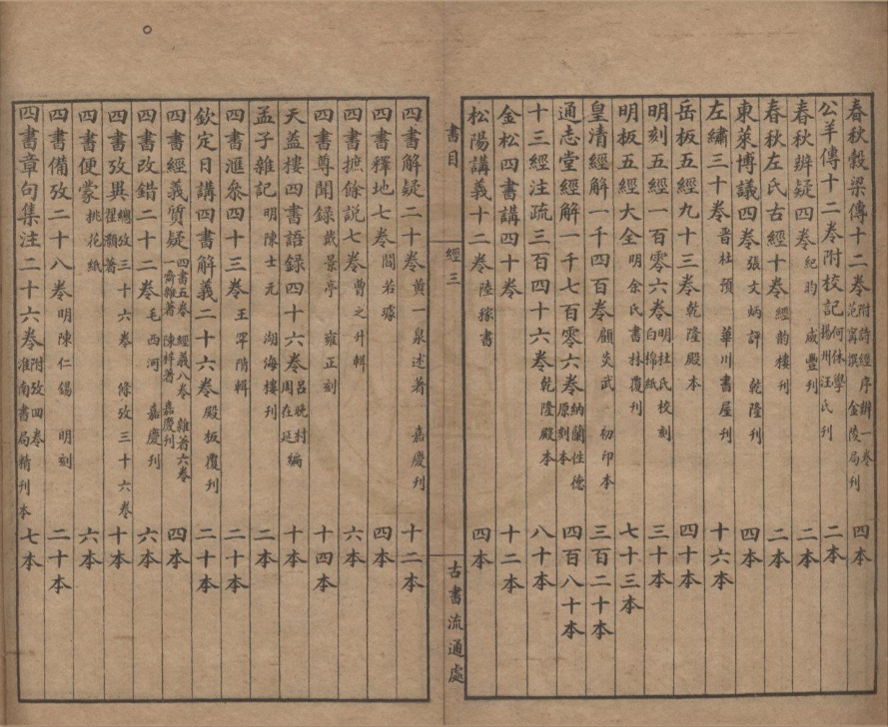 春秋穀梁傳十二卷 附詩經序辨一卷 范甯撰 金陵局刊 四本
公羊傳十二卷附校記 何休學 揚州汪氏刊 二本
春秋辨疑四卷 紀昀 咸豐刊 二本
春秋左氏古經十卷 經韵樓刊 二本
東萊博議四卷 張文炳評 乾隆刊 四本
左繡三十卷 晋杜預 華川書屋刊 十六本
岳板五經九十三卷 乾隆殿本 四十本
明刻五經一百零六卷 明杜氏校刻 白棉紙 三十本
明板五經大全 明余氏書林覆刊 七十三本
皇清經解一千四百卷 顧炎武 初印本 三百二十本
通志堂經解一千七百零六卷 納蘭性德 原刻本 四百八十本
十三經注疏三百四十六卷 乾隆殿本 八十本
金松四書講四十卷 十二本
松陽講義十二卷 陸稼書 四本
書目 經三 古書流通處
四書解疑二十卷 黄一泉述著 嘉慶刊 十二本
四書釋地七卷 閻若璩 四本
四書摭餘説七卷 曹之升輯 六本
四書尊聞錄 戴景亭 雍正刻 十四本
天益樓四書語錄四十六卷 呂晚村 周在延編 十本
孟子雜記 明陳士元 湖海樓刊 二本
四書滙叅四十三卷 王罕階輯 二十本
欽定日講四書解義二十六卷 殿板覆刊 二十本
四書經義質疑 四書五卷 經義八卷 雜著六卷 一齋雜著 陳梓著 嘉慶刊 四本
四書改錯二十二卷 毛西河 嘉慶刊 六本
四書攷異 總攷三十六卷 條攷三十六卷 翟灝著 十本
四書便蒙 桃花紙 六本
四書備攷二十八卷 明陳仁錫 明刻 二十本
四書章句集注二十六卷 附攷四卷 淮南書局精刊本 七本